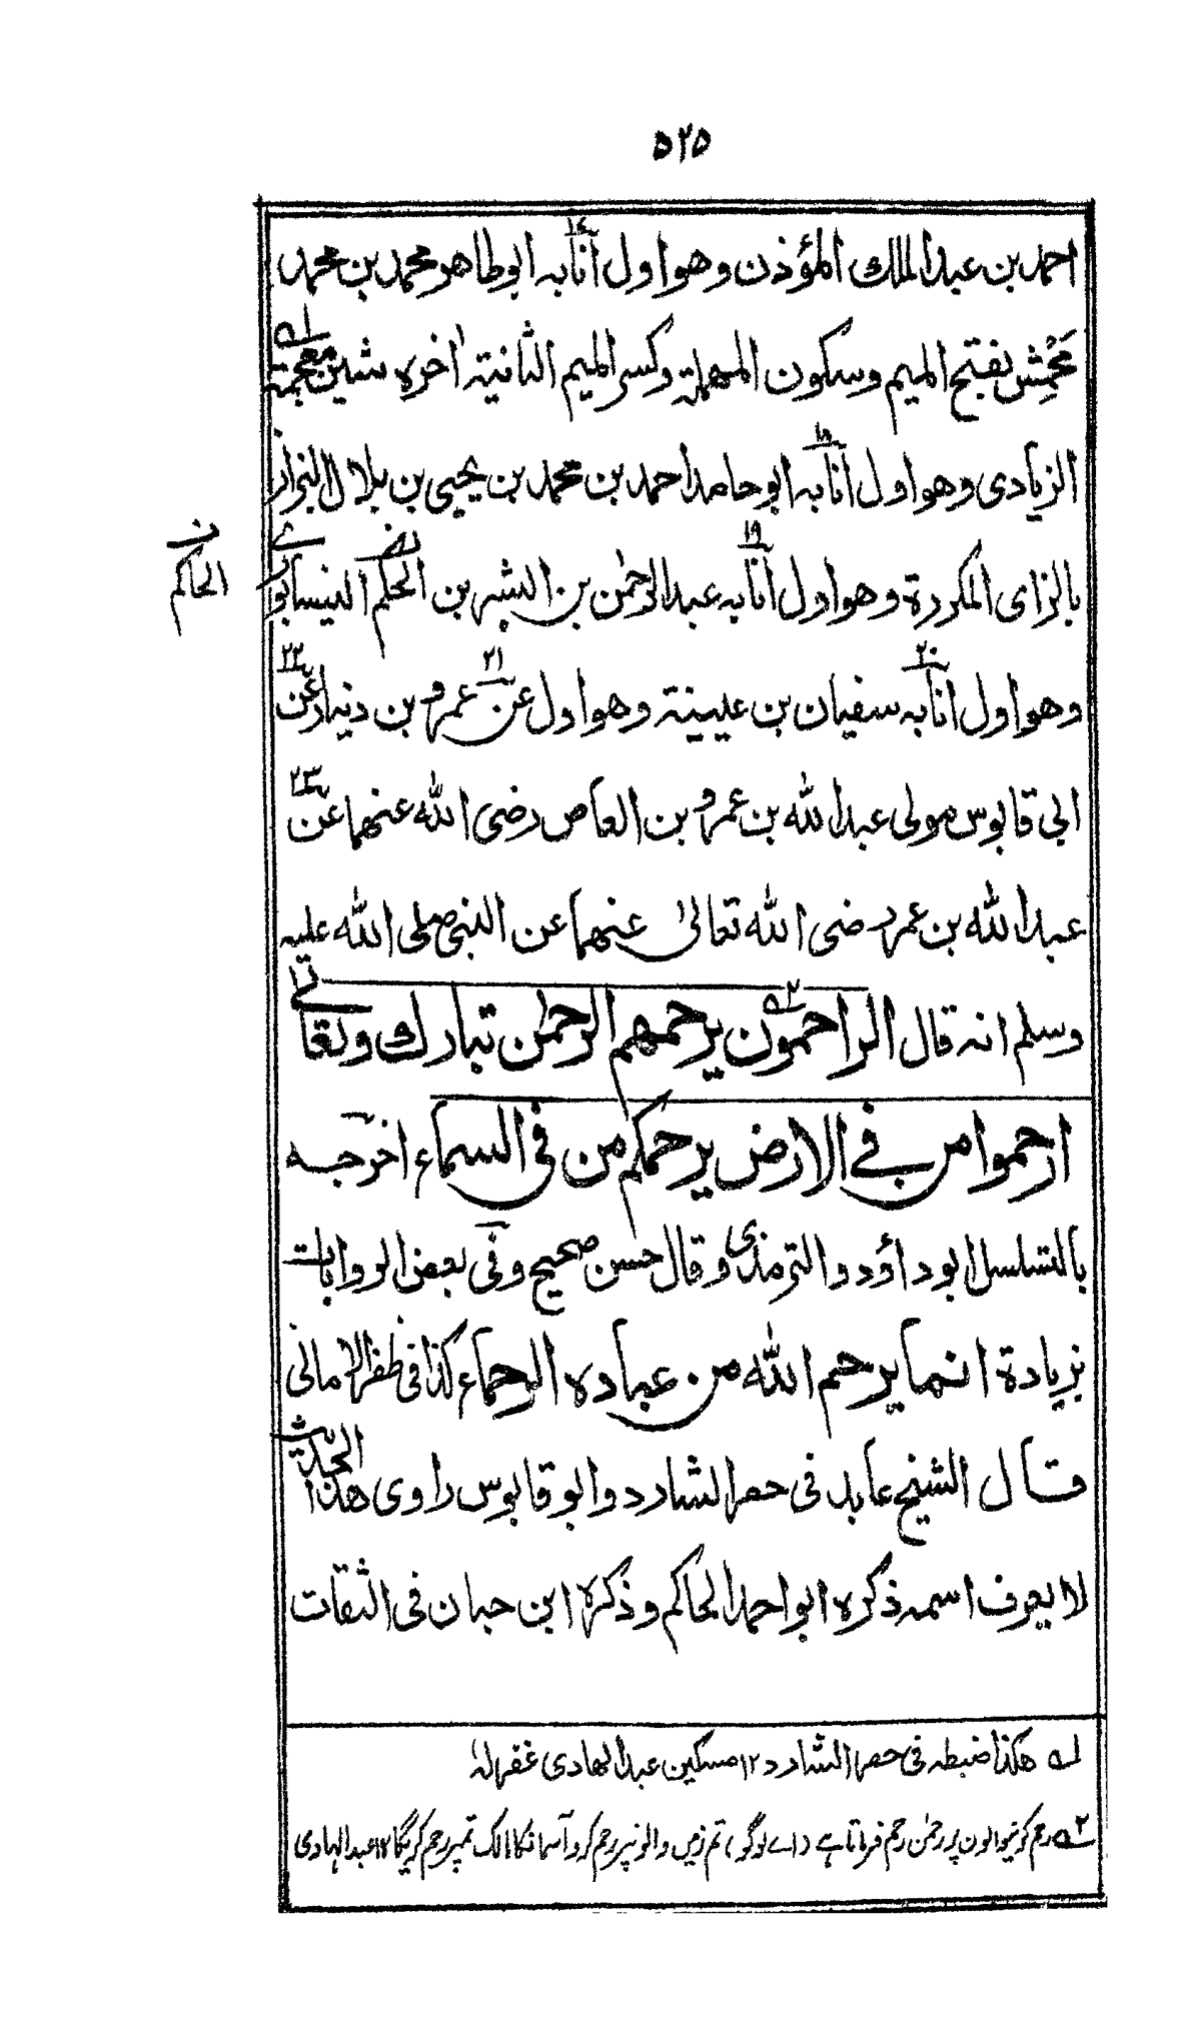 ٥٢٥
احمد بن عبد الملك المؤذن وهو اول انا به ابو طاهر محمد بن محمد
مَحْمِش بفتح الميم وسكون المهملة وكسر الميم الثانية اخره شين معجمة
الزيادى وهو اول انا به ابو حامد احمد بن محمد بن يحيى بن بلال البزاز
بالزاى المكررة وهو اول انا به عبد الرحمٰن بن البشر بن الحكم النيسابورى
الحاكم
وهو اول انا به سفيان بن عيينة وهو اول عن عمرو بن دينار عن
ابى قابوس مولى عبد الله بن عمرو بن العاص رضى الله عنهما عن
عبد الله بن عمرو رضى الله تعالىٰ عنهما عن النبى صلى الله عليه
وسلم انه قال الراحمون يرحمهم الرحمٰن تبارك وتعالى
ارحموا من فى الارض يرحمكم من فى السماء اخرجه
بالتسلسل ابو داؤد والترمذى وقال حسن صحيح وفى بعض الروايات
بزيادة انما يرحم الله من عباده الرحماء كذا فى ظفر الامانى
قال الشيخ عابد فى حصر الشارد وابو قابوس راوى هذا الحديث
لا يعرف اسمه ذكره ابو احمد الحاكم وذكره ابن حبان فى الثقات
١؎ هكذا ضبطه فى حصر الشارد ١٢ مسكين عبد الهادى غفر لهٗ
٢؎ رحم کرنیوالون پر رحمٰن رحم فرماتا ہے (اے لوگو) تم زمین والونپر رحم کرو آسمانکا مالک تمپر رحم کریگا ١٢ عبد الہادی